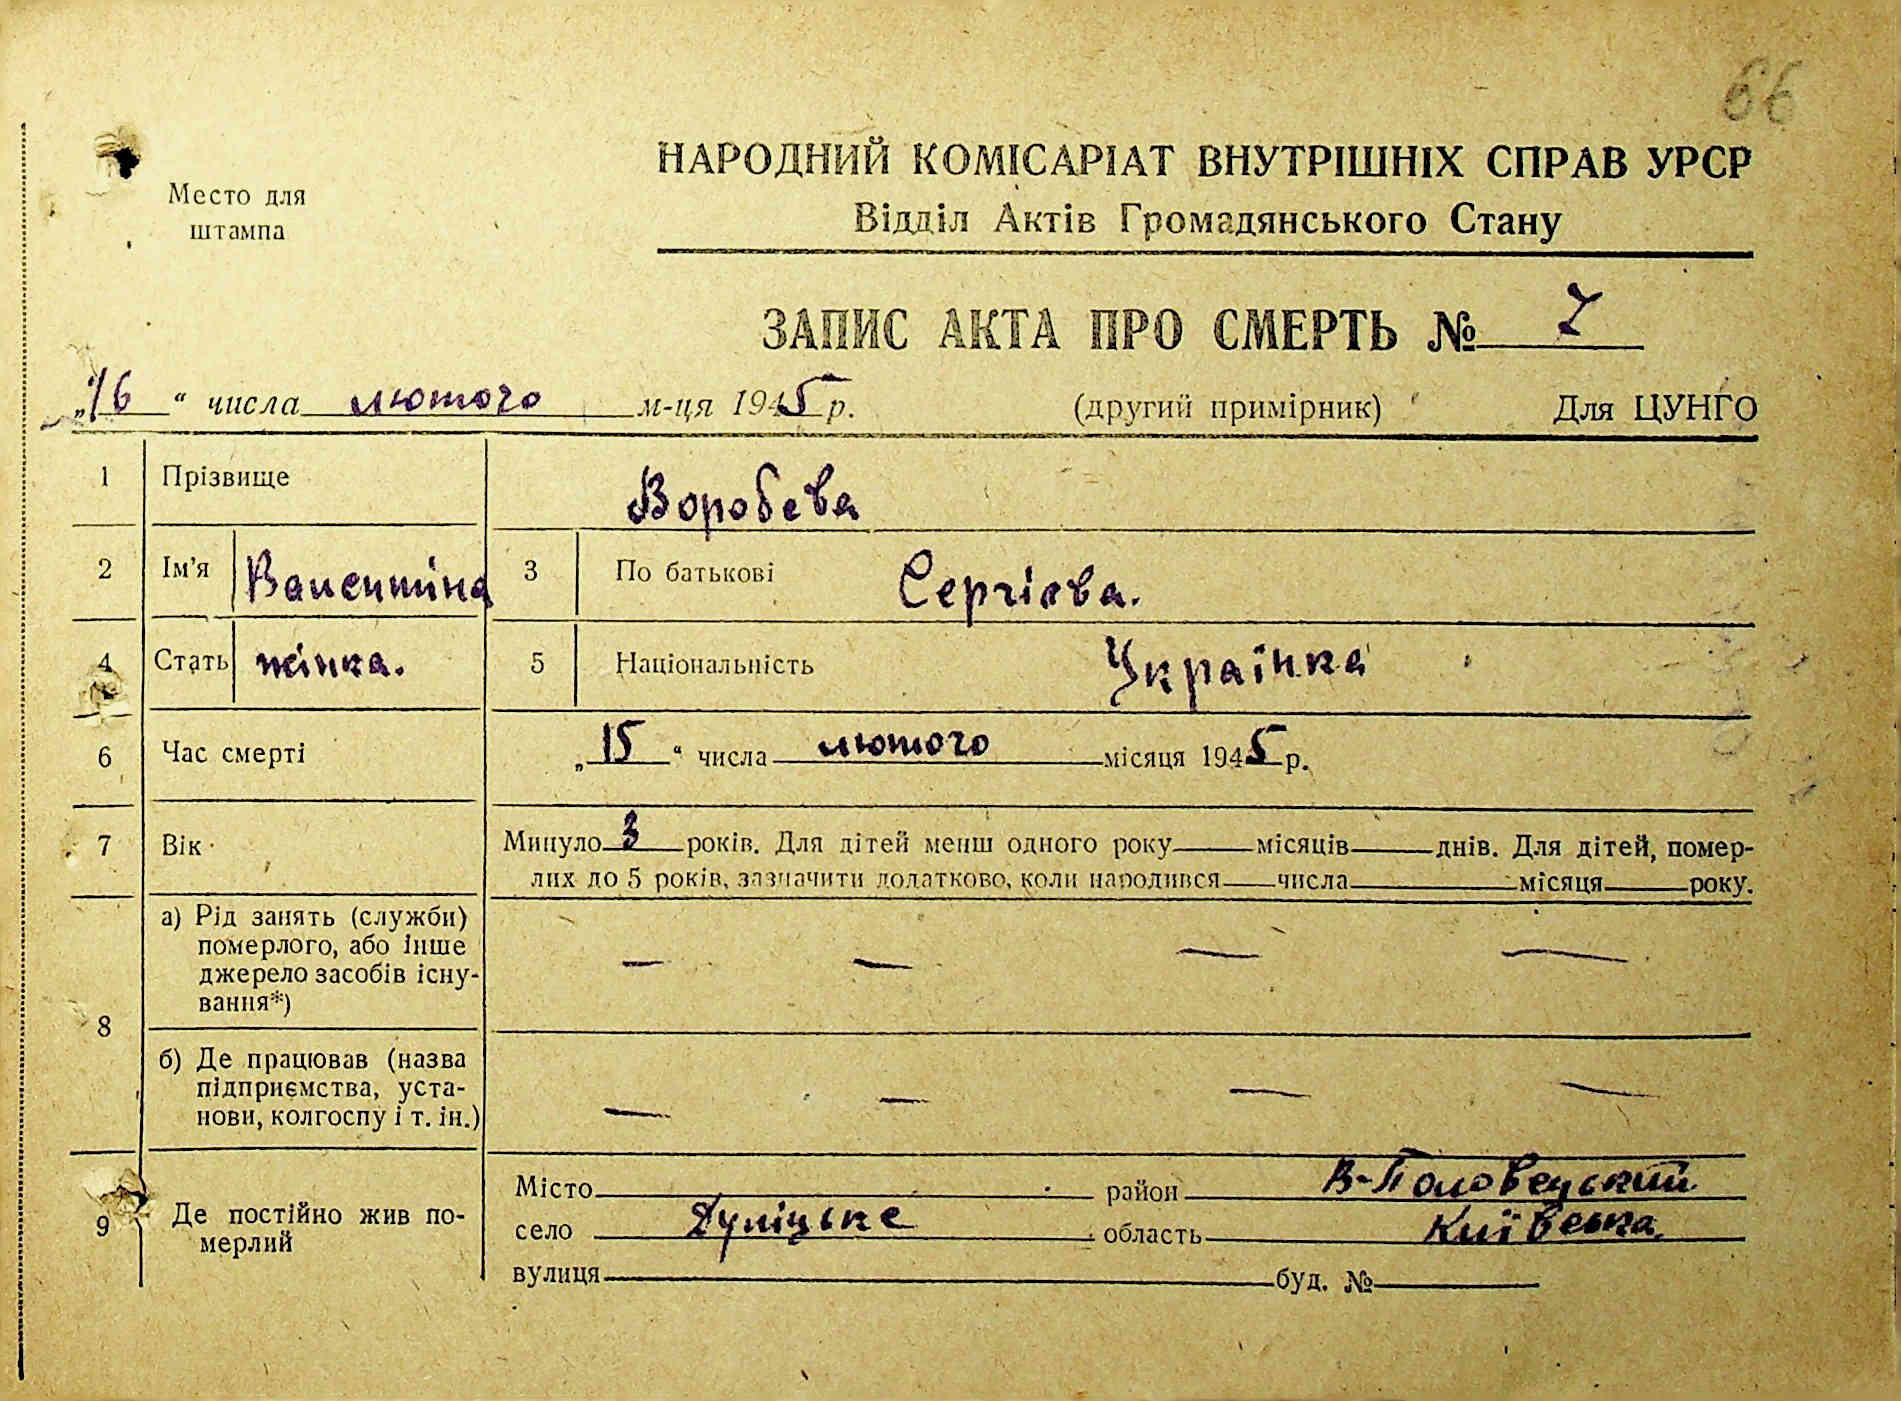 66
Место для
штампа
НАРОДНИЙ КОМІСАРІАТ ВНУТРІШНІХ СПРАВ УРСР
Відділ Актів Громадянського Стану
ЗАПИС АКТА ПРО СМЕРТЬ № 7
„16“ числа лютого м-ця 1945 р. (другий примірник) Для ЦУНГО
1 Прізвище Воробєва
2 Ім’я Валентина 3 По батькові Сергієва.
4 Стать жінка. 5 Національність Українка
6 Час смерті „15“ числа лютого місяця 1945 р.
7 Вік Минуло 3 років. Для дітей менш одного року місяців днів. Для дітей, помер-
лих до 5 років, зазначити додатково, коли народився числа місяця року.
8 а) Рід занять (служби)
померлого, або інше
джерело засобів існу-
вання*)
— — — —
б) Де працював (назва
підприємства, уста-
нови, колгоспу і т. ін.)
— — — —
9 Де постійно жив по-
мерлий
Місто район В-Половецький
село Дуліцьке область Київська.
вулиця буд. №